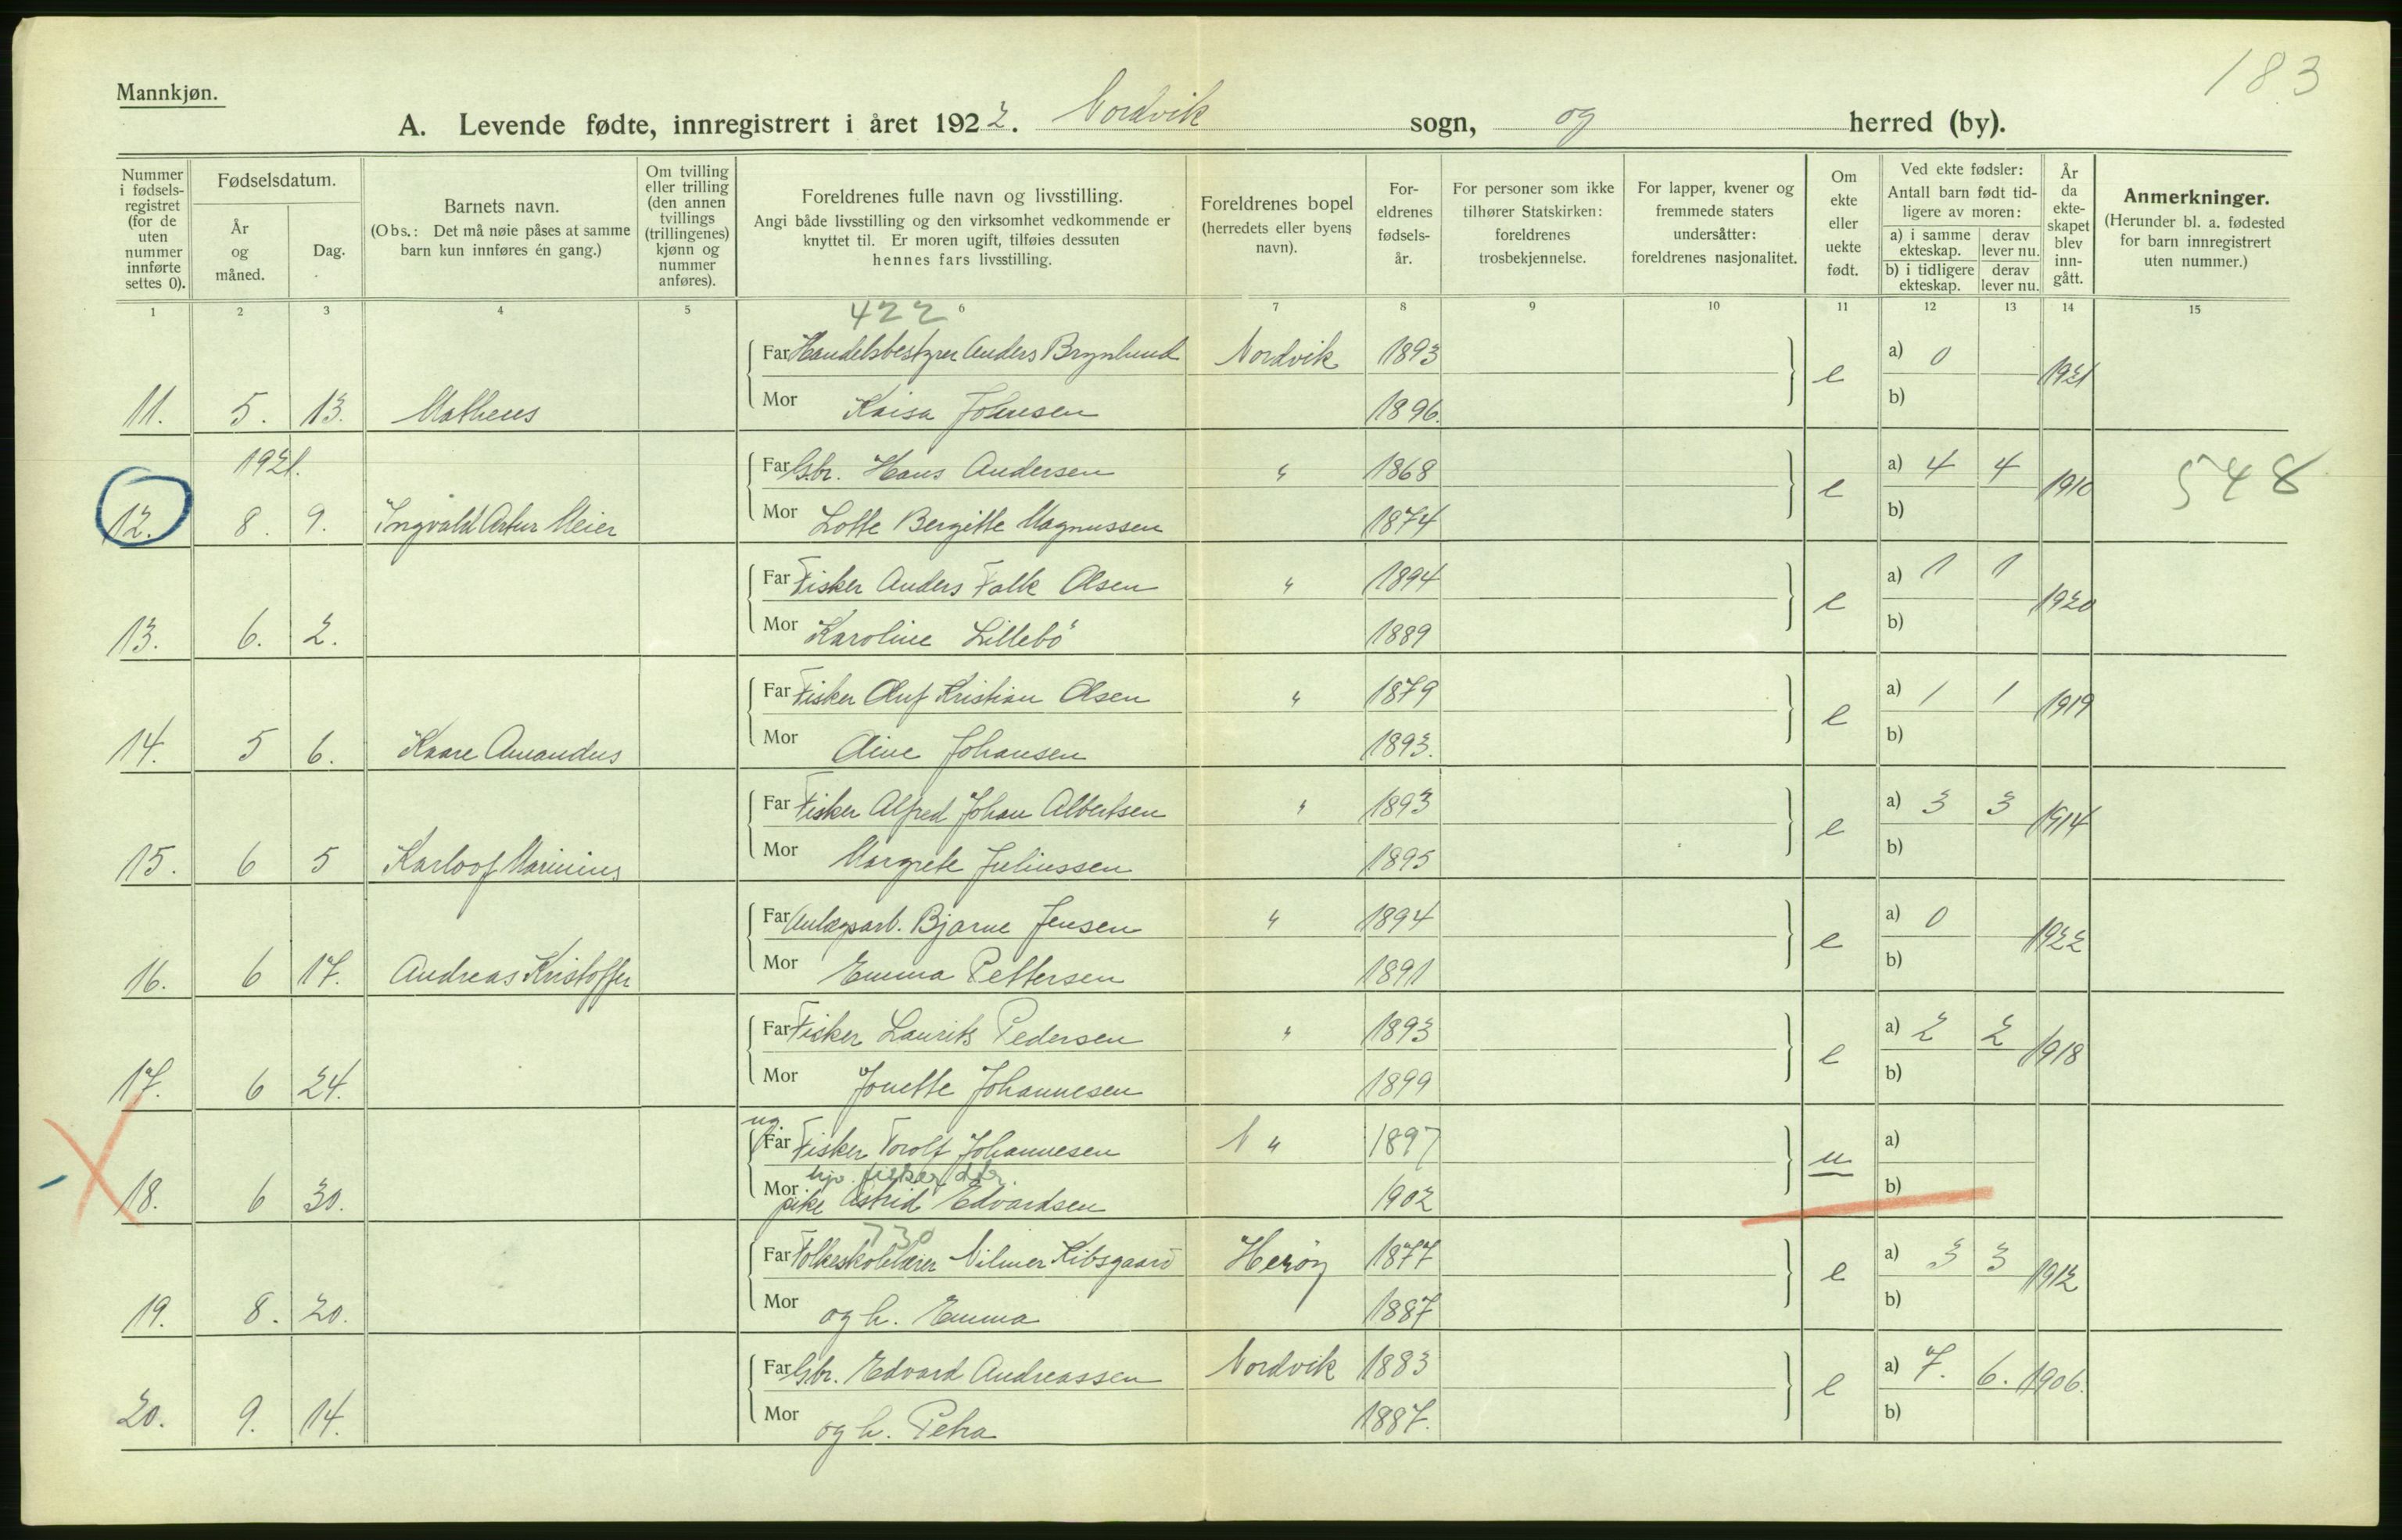 183
Mannkjøn.
A. Levende fødte, innregistrert i året 1922. Nordvik sogn, og herred (by).
Nummer i fødsels- registret (for de uten nummer innførte settes 0).
Fødselsdatum.
År og måned.
Dag.
Barnets navn.
(Obs.: Det må nøie påses at samme barn kun innføres én gang.)
Om tvilling eller trilling (den annen tvillings (trillingenes) kjønn og nummer anføres).
Foreldrenes fulle navn og livsstilling.
Angi både livsstilling og den virksomhet vedkommende er knyttet til. Er moren ugift, tilføies dessuten hennes fars livsstilling.
Foreldrenes bopel (herredets eller byens navn).
For- eldrenes fødsels- år.
For personer som ikke tilhører Statskirken: foreldrenes trosbekjennelse.
For lapper, kvener og fremmede staters undersåtter: foreldrenes nasjonalitet.
Om ekte eller uekte født.
Ved ekte fødsler: Antall barn født tid- ligere av moren:
a) i samme ekteskap. derav lever nu.
b) i tidligere ekteskap. derav lever nu.
År da ekte- skapet blev inn- gått.
Anmerkninger.
(Herunder bl. a. fødested for barn innregistrert uten nummer.)
1 2 3 4 5 6 7 8 9 10 11 12 13 14 15
422
Far Handelsbestyrer Anders Brynlund Nordvik 1893 a) 0
11. 5. 13. Matheus Mor Kaisa Johnsen 1896. e b) 1921
1921.
Far Gbr. Hans Andersen " 1868 a) 4 4 548
12. 8. 9. Ingvald Artur Meier Mor Lotte Bergitte Magnussen 1874 e b) 1910
Far Fisker Anders Falk Olsen " 1894 a) 1 1
13. 6. 2. Mor Karoline Lillebö 1889 e b) 1920
Far Fisker Oluf Kristian Olsen " 1879 a) 1 1
14. 5 6. Kaare Amandus Mor Aine Johansen 1893. e b) 1919
Far Fisker Alfred Johan Albertsen " 1893 a) 3 3
15. 6 5 Karloof Marinius Mor Margrete Juliussen 1895 e b) 1914
Far Anlægsarb. Bjarne Jensen " 1894 a) 0
16. 6 17. Andreas Kristoffer Mor Emma Pettersen 1891 e b) 1922
Far Fisker Laurits Pedersen " 1893 a) 2 2
17. 6 24. Mor Jonette Johannesen 1899 e b) 1918
ug.
Far Fisker Torolf Johannesen N " 1897 a)
fisker dtr
18. 6 30. Mor pike Astrid Edvardsen 1902 u b)
730
Far Folkeskolelærer Nilmer Kibsgaard Herøy 1877 a) 3 3
19. 8. 20. Mor og h. Emma 1887 e b) 1912
Far Gbr. Edvard Andreassen Nordvik 1883 a) 7. 6.
20. 9. 14. Mor og h. Petra 1887. e b) 1906.